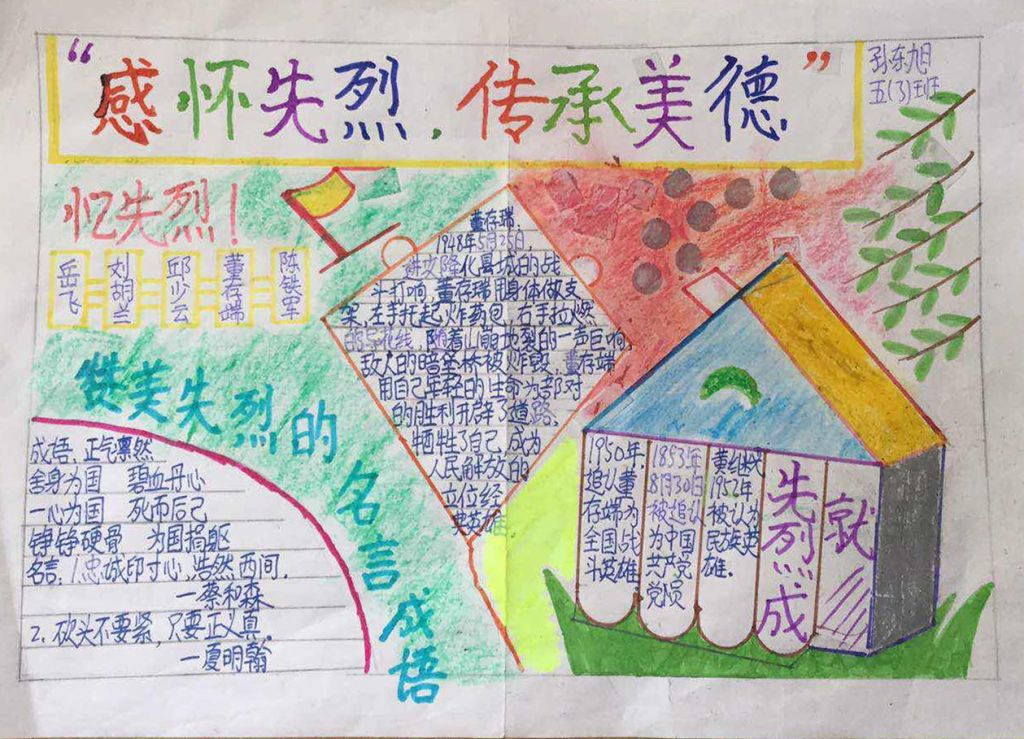 “感怀先烈，传承美德”
孙东旭
五(3)班
忆先烈！
岳飞
刘胡兰
邱少云
董存瑞
陈铁军
赞美先烈的名言成语
成语：正气凛然
舍身为国 碧血丹心
一心为国 死而后己
铮铮硬骨 为国捐躯
名言：1.忠诚印寸心，浩然两间。
—蔡和森
2.砍头不要紧，只要主义真。
—夏明翰
董存瑞：
1948年5月25日
进攻隆化县城的战
斗打响，董存瑞用身体做支
架，左手托起炸药包，右手拉燃
的导火线，随着山崩地裂的一声巨响，
敌人的暗堡桥被炸毁，董存瑞
用自己年轻的生命为部对
的胜利开辟了道路。
牺牲了自己，成为
人民解放的
立位经
典英雄
1950年，
追认董
存瑞为
全国战
斗英雄
1853年
8月30日
被追认
为中国
共产党
党员
1952年
被认为
民族英
雄。
先烈成
就